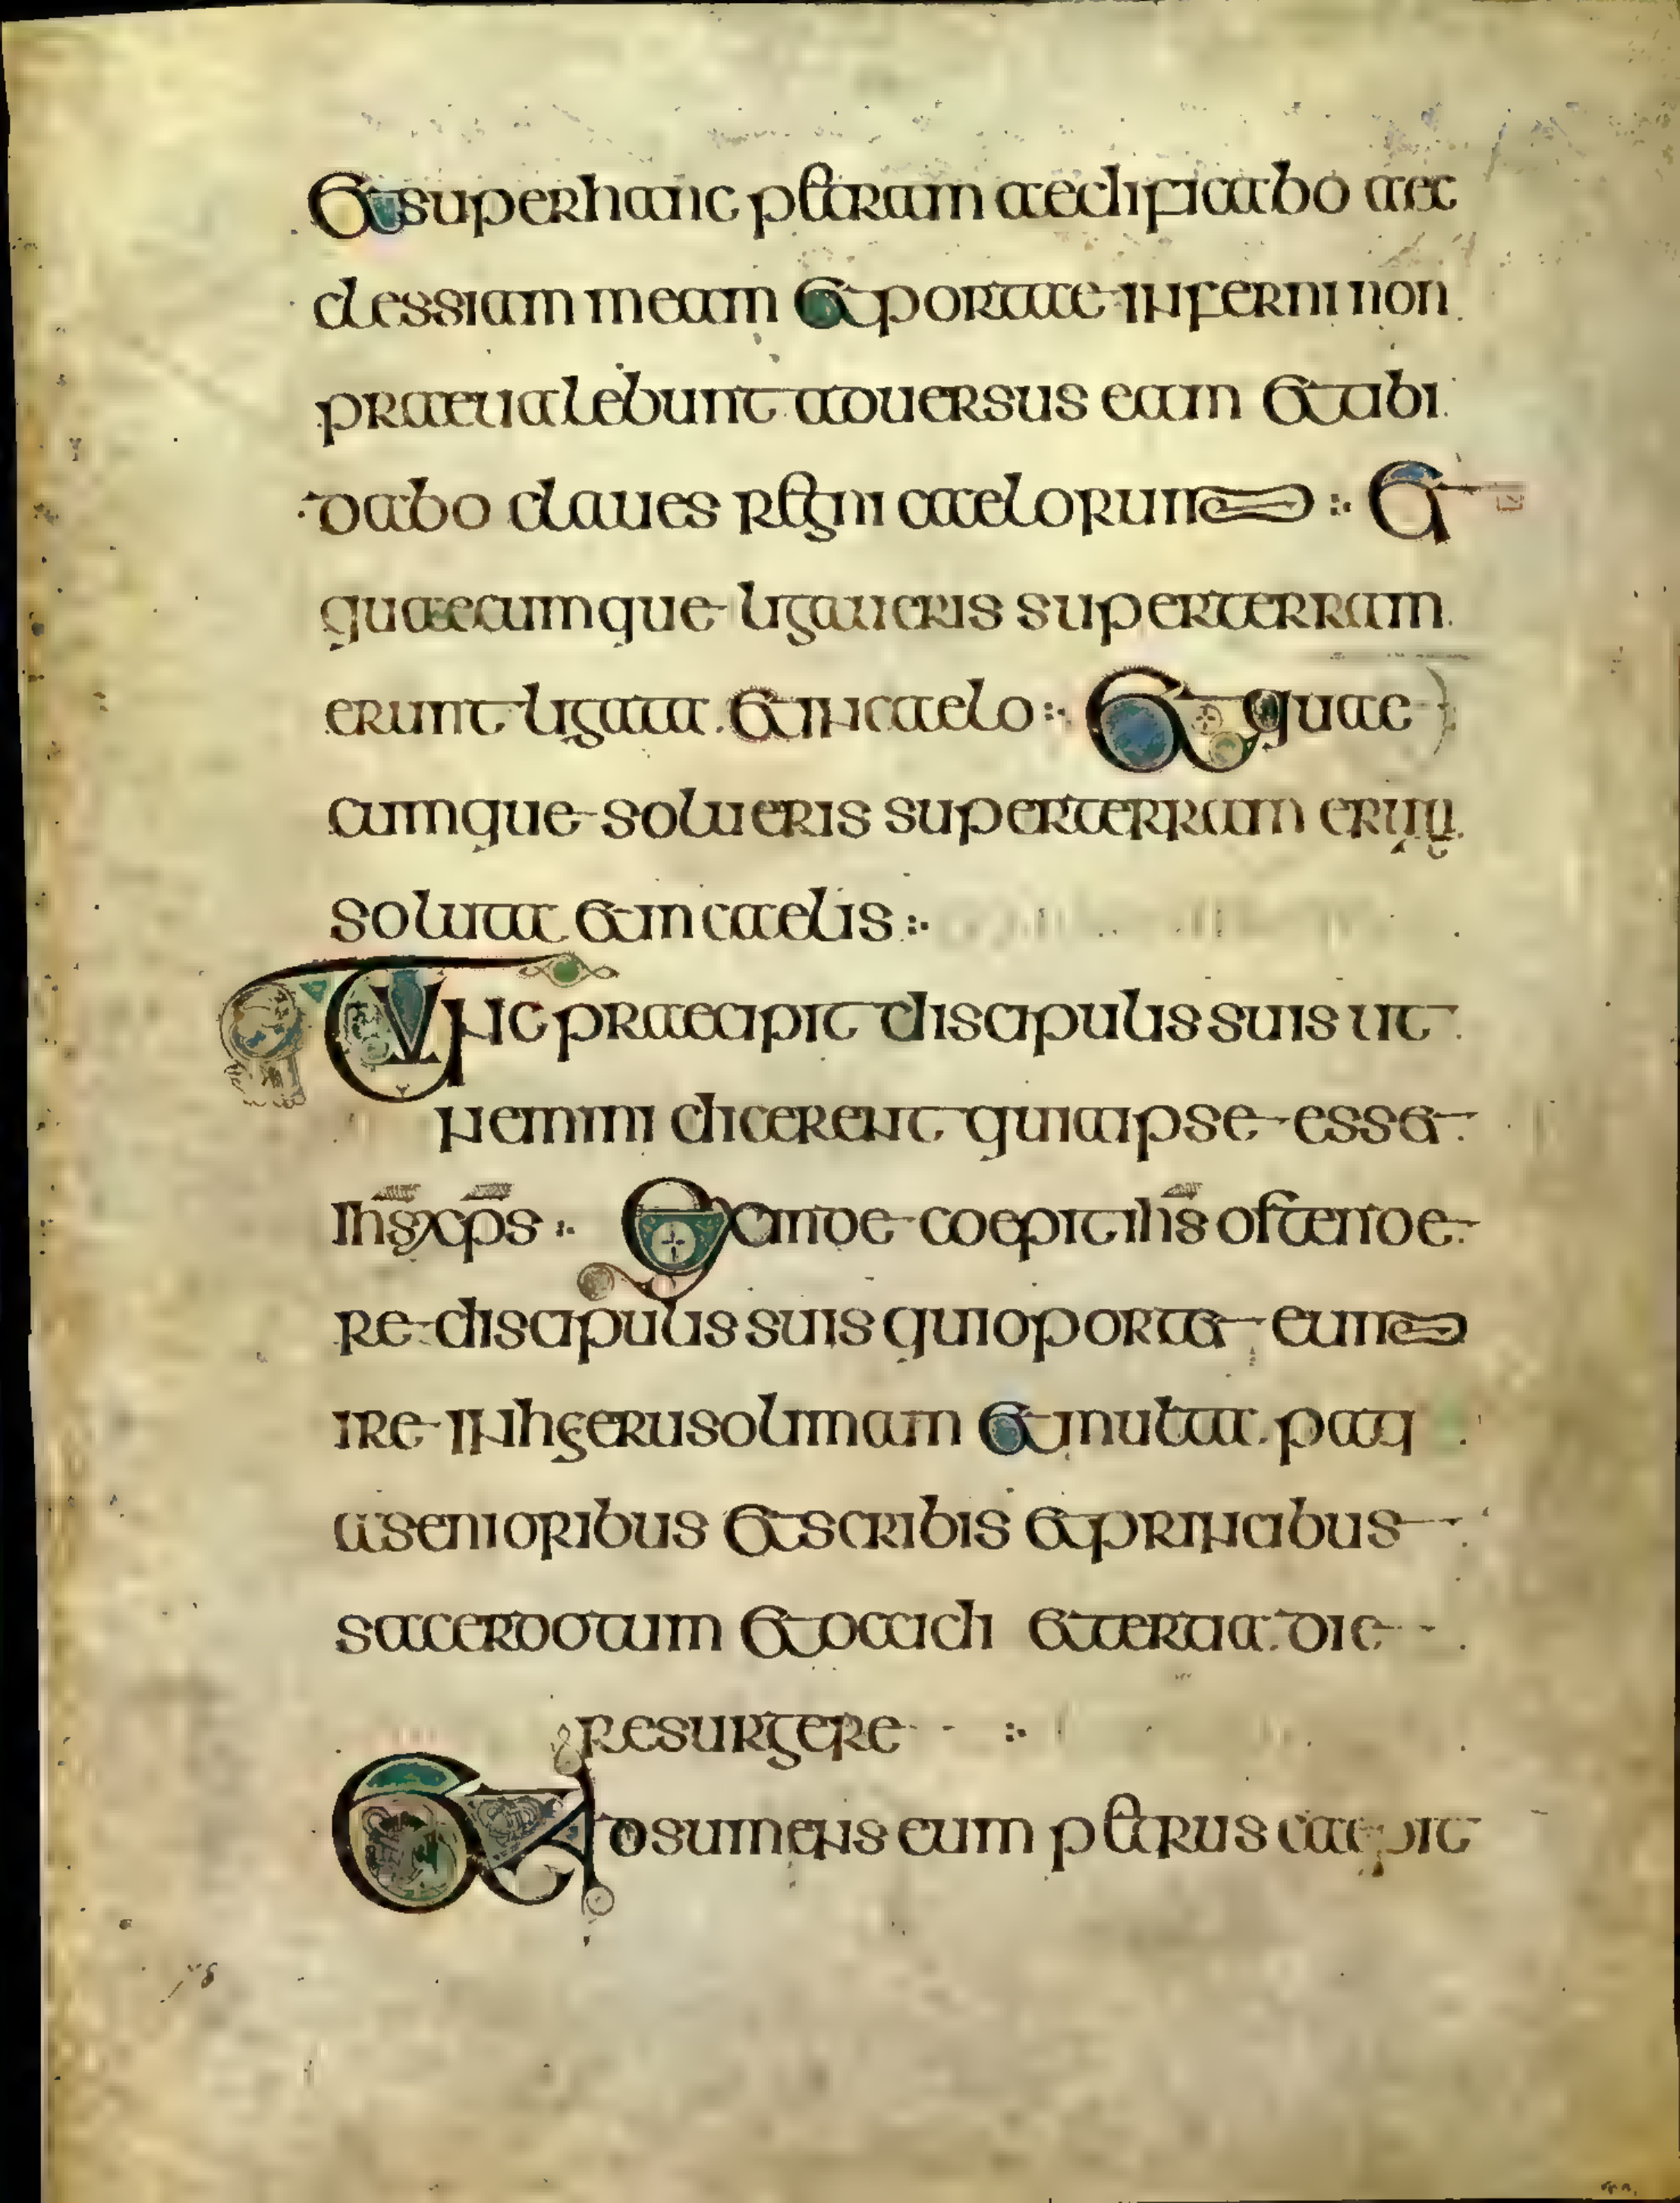 Et super hanc petram aedificabo aec
clessiam meam et portae inferni non
praeualebunt aduersus eam et tibi
dabo claues regni caelorum :· Et
quaecumque ligaueris super terram
erunt ligata et in caelo :· Et quae
cumque solueris super terram erunt
soluta et in caelis :·
Tunc praecipit discipulis suis ut
nemini dicerent quia ipse esset
ihs xps :· Exinde coepit ihs ostende
re discipulis suis qui oportet eum
ire in hgerusolimam et multa pati
a senioribus et scribis et principibus
sacerdotum et occidi et tertia die
resurgere :·
Et adsumens eum petrus caepit